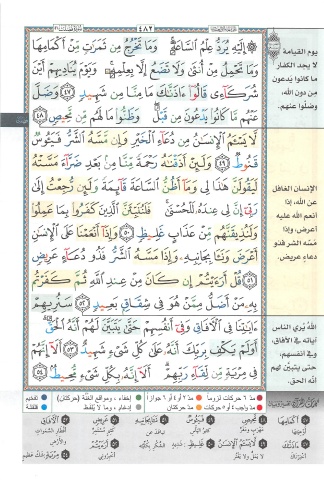 ٤٨٢
إِلَيْهِ يُرَدُّ عِلْمُ ٱلسَّاعَةِۚ وَمَا تَخْرُجُ مِن ثَمَرَٰتٖ مِّنْ أَكْمَامِهَا
وَمَا تَحْمِلُ مِنْ أُنثَىٰ وَلَا تَضَعُ إِلَّا بِعِلْمِهِۦۚ وَيَوْمَ يُنَادِيهِمْ أَيْنَ
شُرَكَآءِي قَالُوٓا۟ ءَاذَنَّٰكَ مَا مِنَّا مِن شَهِيدٖ ٤٧ وَضَلَّ
عَنْهُم مَّا كَانُوا۟ يَدْعُونَ مِن قَبْلُۖ وَظَنُّوا۟ مَا لَهُم مِّن مَّحِيصٖ ٤٨
لَّا يَسْـَٔمُ ٱلْإِنسَٰنُ مِن دُعَآءِ ٱلْخَيْرِ وَإِن مَّسَّهُ ٱلشَّرُّ فَيَـُٔوسٞ
قَنُوطٞ ٤٩ وَلَئِنْ أَذَقْنَٰهُ رَحْمَةٗ مِّنَّا مِنۢ بَعْدِ ضَرَّآءَ مَسَّتْهُ
لَيَقُولَنَّ هَٰذَا لِي وَمَآ أَظُنُّ ٱلسَّاعَةَ قَآئِمَةٗ وَلَئِن رُّجِعْتُ إِلَىٰ
رَبِّيٓ إِنَّ لِي عِندَهُۥ لَلْحُسْنَىٰۚ فَلَنُنَبِّئَنَّ ٱلَّذِينَ كَفَرُوا۟ بِمَا عَمِلُوا۟
وَلَنُذِيقَنَّهُم مِّنْ عَذَابٍ غَلِيظٖ ٥٠ وَإِذَآ أَنْعَمْنَا عَلَى ٱلْإِنسَٰنِ
أَعْرَضَ وَنَـَٔا بِجَانِبِهِۦ وَإِذَا مَسَّهُ ٱلشَّرُّ فَذُو دُعَآءٍ عَرِيضٖ
٥١ قُلْ أَرَءَيْتُمْ إِن كَانَ مِنْ عِندِ ٱللَّهِ ثُمَّ كَفَرْتُم
بِهِۦ مَنْ أَضَلُّ مِمَّنْ هُوَ فِي شِقَاقِۭ بَعِيدٖ ٥٢ سَنُرِيهِمْ
ءَايَٰتِنَا فِي ٱلْءَافَاقِ وَفِيٓ أَنفُسِهِمْ حَتَّىٰ يَتَبَيَّنَ لَهُمْ أَنَّهُ ٱلْحَقُّۗ
أَوَلَمْ يَكْفِ بِرَبِّكَ أَنَّهُۥ عَلَىٰ كُلِّ شَيْءٖ شَهِيدٌ ٥٣ أَلَآ إِنَّهُمْ
فِي مِرْيَةٖ مِّن لِّقَآءِ رَبِّهِمْۗ أَلَآ إِنَّهُۥ بِكُلِّ شَيْءٖ مُّحِيطُۢ ٥٤
يوم القيامة
لا يجد الكفار
ما كانوا يدعون
من دون الله،
وضلّوا عنهم.
الإنسان الغافل
عن الله، إذا
أنعم الله عليه
أعرض، وإذا
مَسّه الشر فذو
دعاءٍ عريض.
الله يُري الناس
آياته في الآفاق،
وفي أنفسهم،
حتى يتبيّن لهم
أنه الحق.
مدّ ٦ حركات لزوماً
مدّ ٢ أو ٤ أو ٦ جوازاً
إخفاء، ومواقع الغُنَّة (حركتان)
تفخيم
مدّ واجب ٤ أو ٥ حركات
مدّ حركتان
إدغام، وما لا يُلفظ
قلقلة